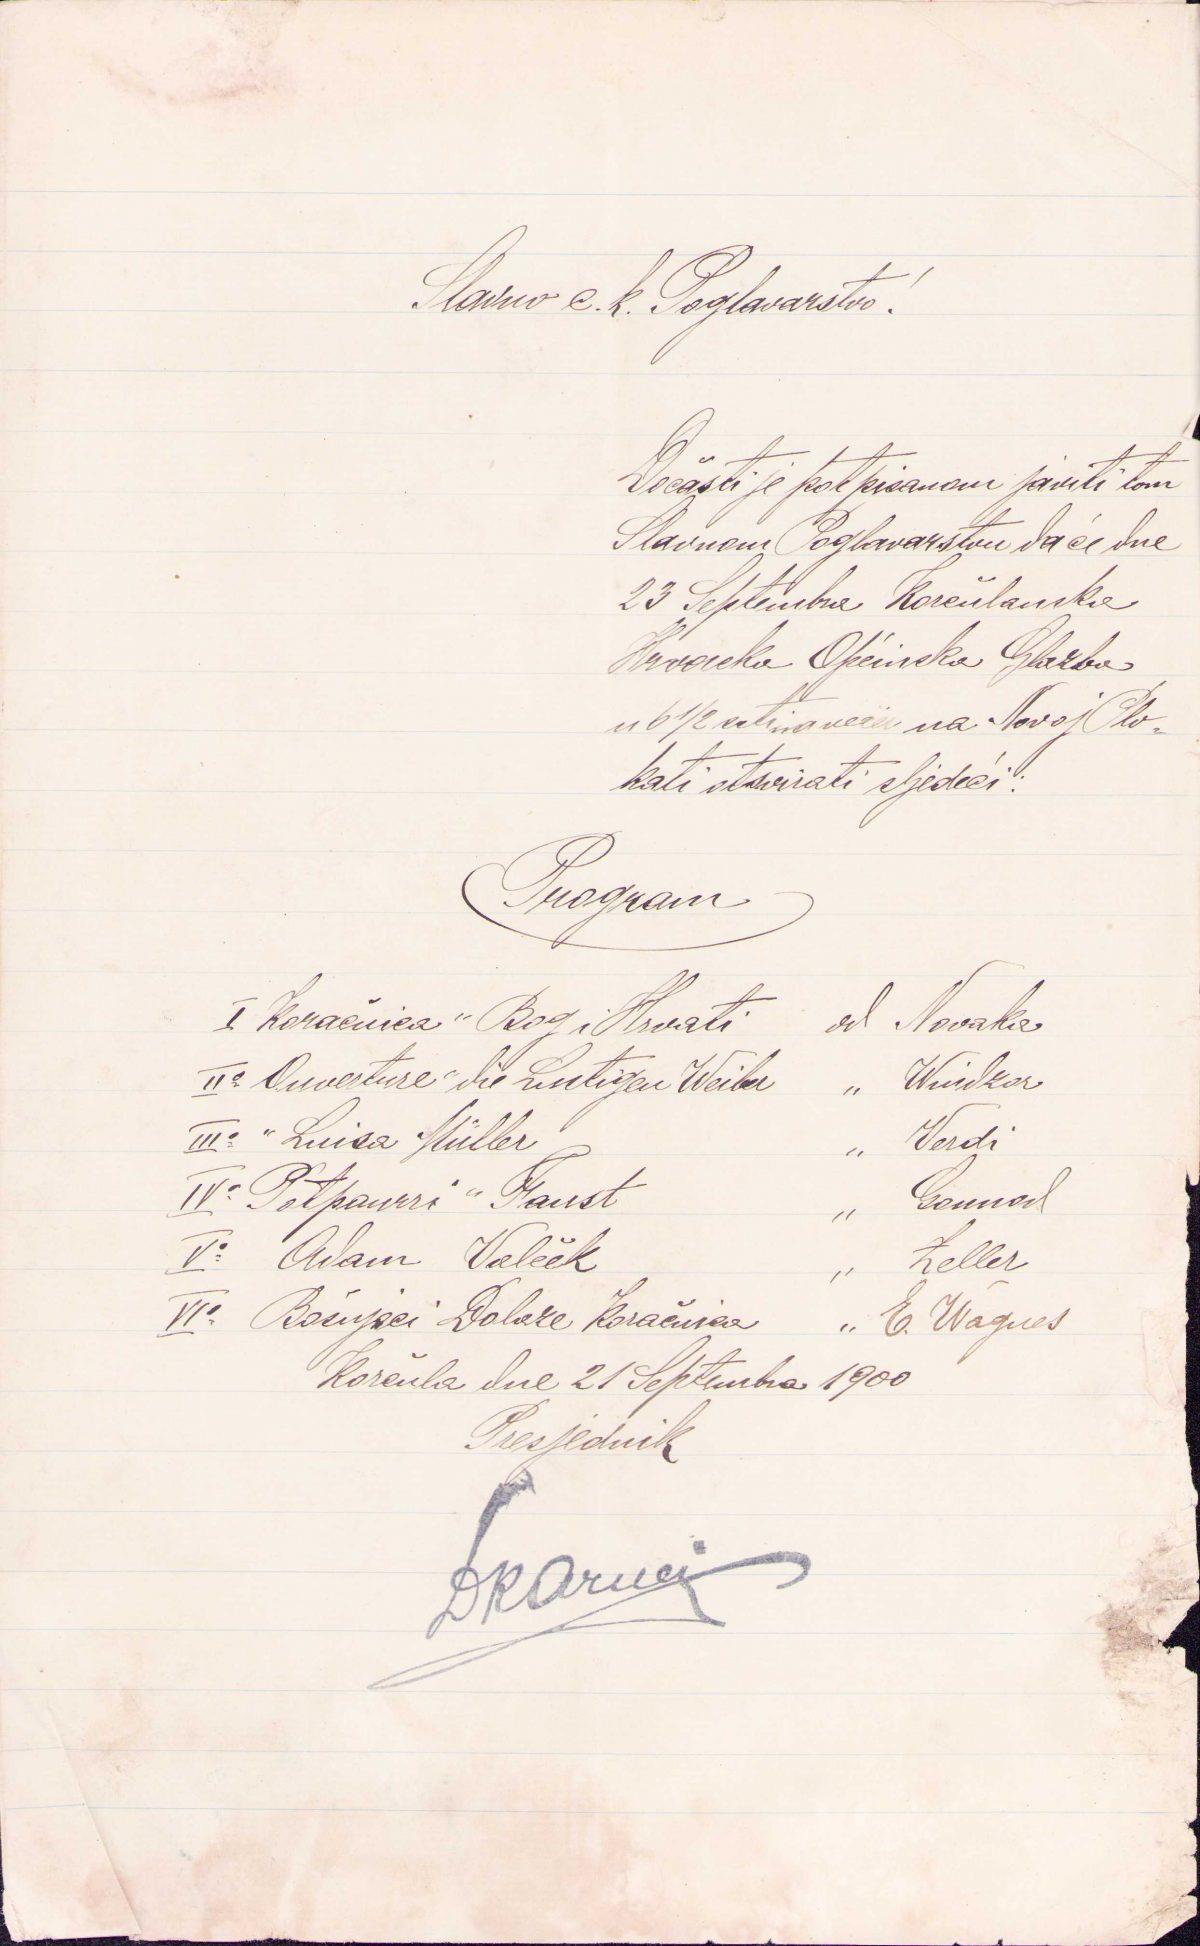 Slavno c. k. Poglavarstvo!
Dočasti je potpisanom javiti tom
Slavnom Poglavarstvu da će dne
23 Septembra Korčulanska
Hrvacka Općinska Glazba
u 6 1/2 na Novoj Plo-
kati otsvirati sljedeći:
Program
I Koračnica " Bog i Hrvati od Novaka
IIo Ouverture " die Lustigen Weiber " Windzor
IIIo " Luisa Müller " Verdi
IVo Potpourri " Faust " Gounod
Vo Adam Valček " Zeller
VIo Bošnjaci Dolaze Koračnica " E. Wagnes
Korčula dne 21 Septembra 1900
Presjednik